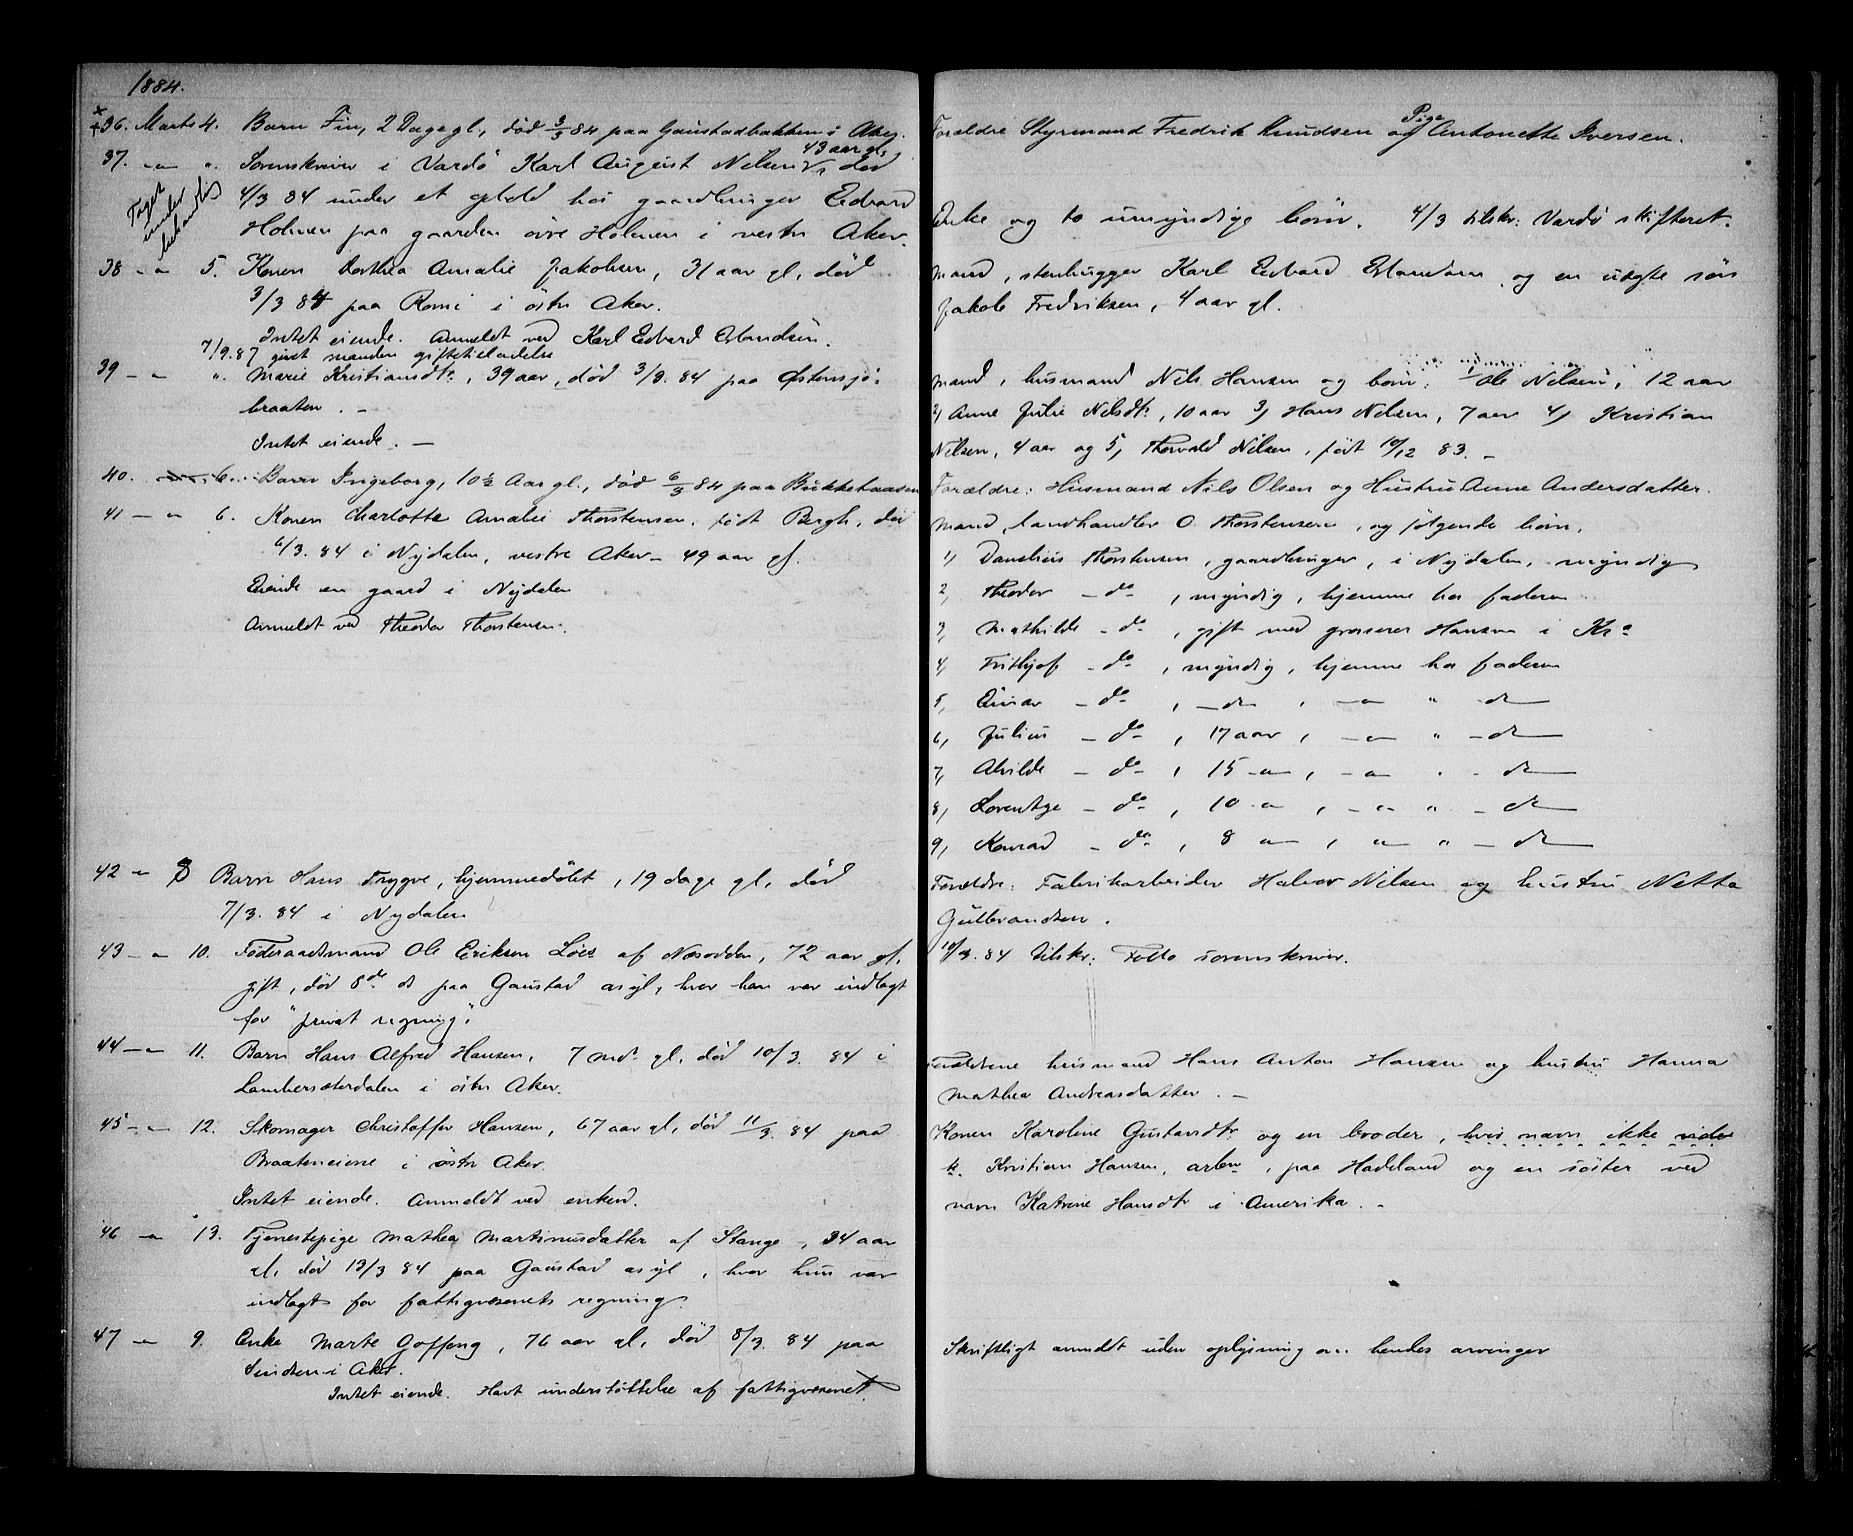 1884.
36. Marts 4. Barn Fin, 2 Dage gl., død 3/3 84 paa Gaustadbakken i Aker.
Forældre Styrmand Fredrik Knudsen og Pige Antonette Iversen.
37. -"- ". Sorenskriver i Vardö Karl August Nielsen, 43 aar gl., død
4/3 84 under et ophold hos gaardbruger Edvard
Holmen paa gaarden övre Holmen i vestre Aker.
Taget under behandling
Enke og to umyndige börn. 4/3 tilskr. Vardö skifteret.
38 -"- 5. Konen Dorthea Amalie Jakobsen, 31 aar gl., död
3/3 84 paa Romi i östre Aker.
Intet eiende. Anmeldt ved Karl Edvard Erlandsen.
7/9.87 givet manden giftetilladelse
Mand, stenhugger Karl Edvard Erlandsen og en uægte sön
Jakob Fredriksen, 4 aar gl.
39 -"- ". Marie Kristiansdtr., 39 aar, död 3/3. 84 paa Østensjö-
braaten. -
Intet eiende. -
Mand, husmand Nils Hansen og börn: 1, Ole Nilsen, 12 aar
2, Anne Julie Nilsdtr., 10 aar 3, Hans Nilsen, 7 aar 4, Kristian
Nilsen, 4 aar og 5, Thorvald Nilsen, födt 10/12 83. -
40. 6. Barn Ingeborg, 10½ Aar gl., död 6/3 84 paa Bukkehaasen
Forældre: Husmand Nils Olsen og Hustru Anne Andersdatter.
41 -"- 6. Konen Charlotte Amalie Thorstensen, födt Bergh, död
6/3. 84 i Nydalen, vestre Aker - 49 aar gl.
Eiende en gaard i Nydalen
Anmeldt ved Theodor Thorstensen.
Mand, landhandler O. Thorstensen, og fölgende börn,
1, Danelius Thorstensen, gaardbruger, i Nydalen, myndig
2, Theodor - do , myndig, hjemme hos faderen
3, Mathilde - do , gift med grosserer Hansen i Kra
4, Frithjof - do , myndig, hjemme hos faderen
5, Einar - do , - do , -"- " do
6, Julius - do , 17 aar, -"- " - do
7, Alvilde - do , 15 -"-, -"- " - do
8, Lorentze - do , 10 -"-, -"- " - do
9, Konrad - do , 8 -"-, -"- " - do
42 -"- 8 Barn Hans Trygve, hjemmedöbt, 19 dage gl., död
7/3. 84 i Nydalen
Forældre: Fabrikarbeider Halvor Nilsen og hustru Netta
Gulbrandsen.
43 -"- 10. Föderaadsmand Ole Eriksen Löes af Næsodden, 72 aar gl.
gift, död 8de ds paa Gaustad asyl, hvor han var indlagt
for "privat regning".
10/3.84 tilskr. Follo sorenskriver.
44 -"- 11. Barn Hans Alfred Hansen, 7 mdr gl., död 10/3. 84 i
Lambersæterdalen i östre Aker.
Forældrene husmand Hans Anton Hansen og hustru Hanna
Mathea Andreasdatter. -
45 -"- 12. Skomager Christoffer Hansen, 67 aar gl., död 11/3. 84 paa
Braateneiene i östre Aker.
Intet eiende. Anmeldt ved enken.
Konen Karoline Gustavsdtr og en broder, hvis navn ikke vides
Kristian Hansen, arbm, paa Hadeland og en söster ved
navn Katrine Hansdtr i Amerika. -
46 -"- 13. Tjenestepige Mathea Martinusdatter af Stange, 34 aar
gl. död 13/3 84 paa Gaustad asyl, hvor hun var
indlagt for fattigvæsenets regning.
47 -"- 9. Enke Marte Goffeng, 76 aar gl., död 8/3. 84 paa
Sinsen i Aker.
Intet eiende. Havt understöttelse af fattigvæsenet.
Skriftligt anmeldt uden oplysning om hendes arvinger